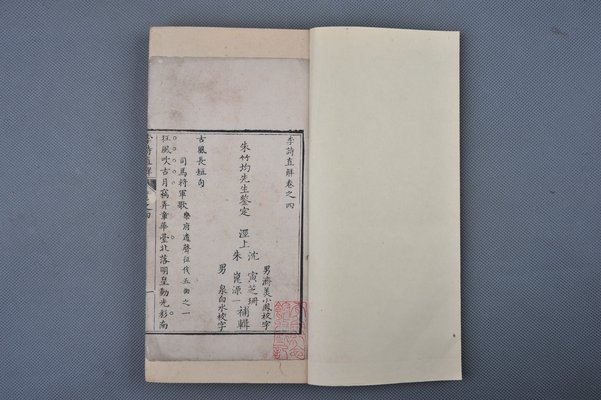 李詩直解卷之四
男濟美小鳳校字
沈寅芝珊
朱竹均先生鑒定 涇上 補輯
朱崑源一
男泉白水校字
古風長短句
司馬將軍歌 樂府處聲征伐五曲之一
狂風吹古月竊弄章華臺北落明星動光彩南
李詩直解